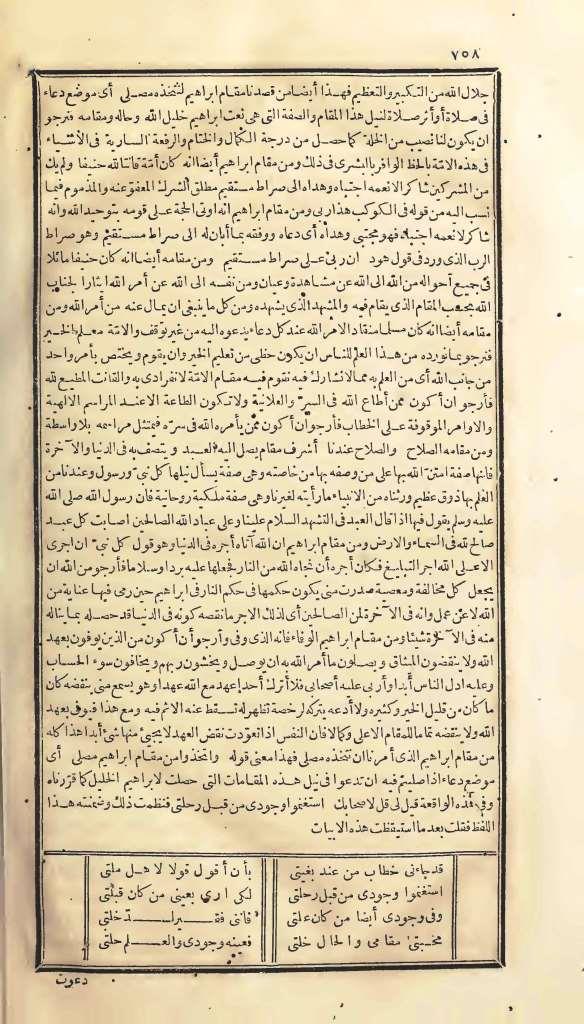 ٧٥٨
جلال الله من التكبير والتعظيم فهذا أيضا من قصدنا مقام ابراهيم لنتخذه مصلى أى موضع دعاء
فى صلاة أو أثر صلاة لنيل هذا المقام والصفة التى هى نعت ابراهيم خليل الله وحاله ومقامه فنرجو
ان يكون لنا نصيب من الخلة كما حصل من درجة الكمال والختام والرفعة السارية فى الأشياء
فى هذه الامة بالحظ الوافر بالبشرى فى ذلك ومن مقام ابراهيم أيضا انه كان أمّة قانتا لله حنيفا ولم يك
من المشركين شاكر الانعمه اجتباه وهداه الى صراط مستقيم مطلق الشرك المعفوّ عنه والمذموم فيما
نسب اليه من قوله فى الكوكب هذا ربى ومن مقام ابراهيم انه أوتى الحجة على قومه بتوحيد الله وانه
شاكر لانعمه اجتباه فهو مجتبى وهداه أى دعاه ووفقه بما أبان له الى صراط مستقيم وهو صراط
الرب الذى ورد فى قول هود ان ربى على صراط مستقيم ومن مقامه أيضا انه كان حنيفا مائلا
فى جميع أحواله من الله الى الله عن مشاهدة وعيان ومن نفسه الى الله عن أمر الله ايثارا لجناب
الله بحسب المقام الذى يقام فيه والمشهد الذى يشهده ومن كل ما ينبغى ان يمال عنه من أمر الله ومن
مقامه أيضا انه كان مسلما منقادا لامر الله عند كل دعاء يدعوه اليه من غير توقف والامة معلم الخير
فنرجو بما نورده من هذا العلم للناس ان يكون حظى من تعليم الخير وان يقوم و يختص بأمر واحد
من جانب الله أى من العلم به مما لا نشارك فيه نقوم فيه مقام الامّة لانفرادى به والقانت المطيع لله
فأرجو ان أكون ممن أطاع الله فى السرّ والعلانية ولا تكون الطاعة الا عند المراسم الالهية
والاوامر الموقوفة على الخطاب فأرجو أن أكون ممن يأمره الله فى سرّه فيمتثل مراسمه بلا واسطة
ومن مقامه الصلاح والصلاح عندنا أشرف مقام يصل اليه العبد و يتصف به فى الدنيا والآخرة
فانها صفة امتنّ الله بها على من وصفه بها من خاصته وهى صفة يسأل نيلها كل نبىّ ورسول وعندنا من
العلم بها ذوق عظيم ورثناه من الانبياء ما رأيته لغيرنا وهى صفة ملكية روحانية فان رسول الله صلى الله
عليه وسلم يقول فيها اذا قال العبد فى التشهد السلام علينا وعلى عباد الله الصالحين اصابت كل عبد
صالح لله فى السماء والارض ومن مقام ابراهيم ان الله آتاه أجره فى الدنيا وهو قول كل نبىّ ان اجرى
الا على الله اجر التبليغ فكان أجره أن نجاه الله من النار فجعلها عليه بردا وسلاما فأرجو من الله ان
يجعل كل مخالفة ومعصية صدرت منى يكون حكمها فى حكم النار فى ابراهيم حين رمى فيها عناية من
الله لا عن عمل وانه فى الآخرة لمن الصالحين أى لذلك الاجر ما نقصه كونه فى الدنيا قد حصله بما يناله
منه فى الآخرة شيئا ومن مقام ابراهيم الوفاء فانه الذى وفى وأرجو أن أكون من الذين يوفون بعهد
الله ولا ينقضون الميثاق و يصلون ما أمر الله به ان يوصل و يخشون ربهم و يخافون سوء الحساب
وعليه ادل الناس أبدا وأربى عليه أصحابى فلا أترك أحدا عهد مع الله عهدا وهو يسمع منى ينقضه كان
ما كان من قليل الخير وكثيره ولا أدعه يتركه لرخصة تظهر له تسقط عنه الاثم فيه ومع هذا فيوفى بعهد
الله ولا ينقضه تماما للمقام الاعلى وكمالا فان النفس اذا تعوّدت نقض العهد لا يجىء منها شىء أبدا هذا كله
من مقام ابراهيم الذى أمرنا ان نتخذه مصلى فهذا معنى قوله واتخذوا من مقام ابراهيم مصلى أى
موضع دعاء اذا صليتم فيه ان تدعوا فى نيل هذه المقامات التى حصلت لابراهيم الخليل كما قرّرناه
وفى هذه الواقعة قيل لى قل لاصحابك استغنموا وجودى من قبل رحلتى فنظمت ذلك وضمنته هذا
اللفظ فقلت بعد ما استيقظت هذه الابيات
قد جاءنى خطاب من عند بغيتى بأن أقول قولا لاهل ملتى
استغنموا وجودى من قبل رحلتى لكى ارى بعينى من كان قبلتى
وفى وجودى أيضا من كان علتى فاننى فقير لسد خلتى
محبتى مقامى والحال خلتى فعينه وجودى والعلم حلتى
دعوت